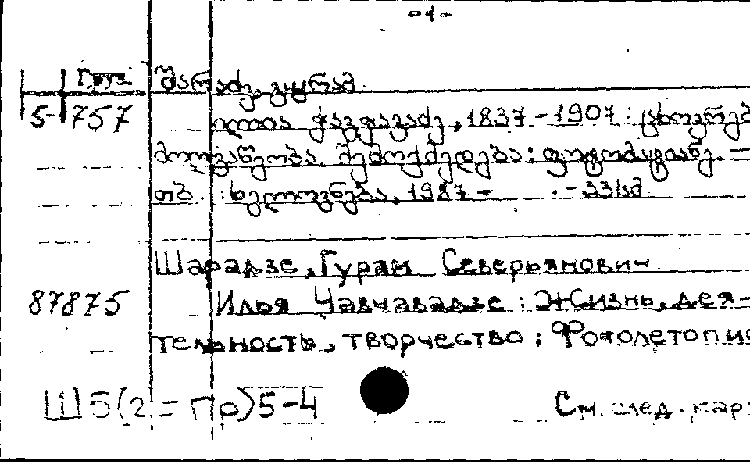 -1-
Груз. შარაძე, გურამ.
5-757 ილია ჭავჭავაძე, 1837-1907: ცხოვრებ
მოღვაწეობა, შემოქმედება: ფოტომატიანე. —
თბ.: ხელოვნება, 1987 -
Шарадзе, Гурам Северьянович
87875 Илья Чавчавадзе: Жизнь, дея-
тельность, творчество: Фотолетопис
Ш5(2=Гр)5-4 См. след. кар